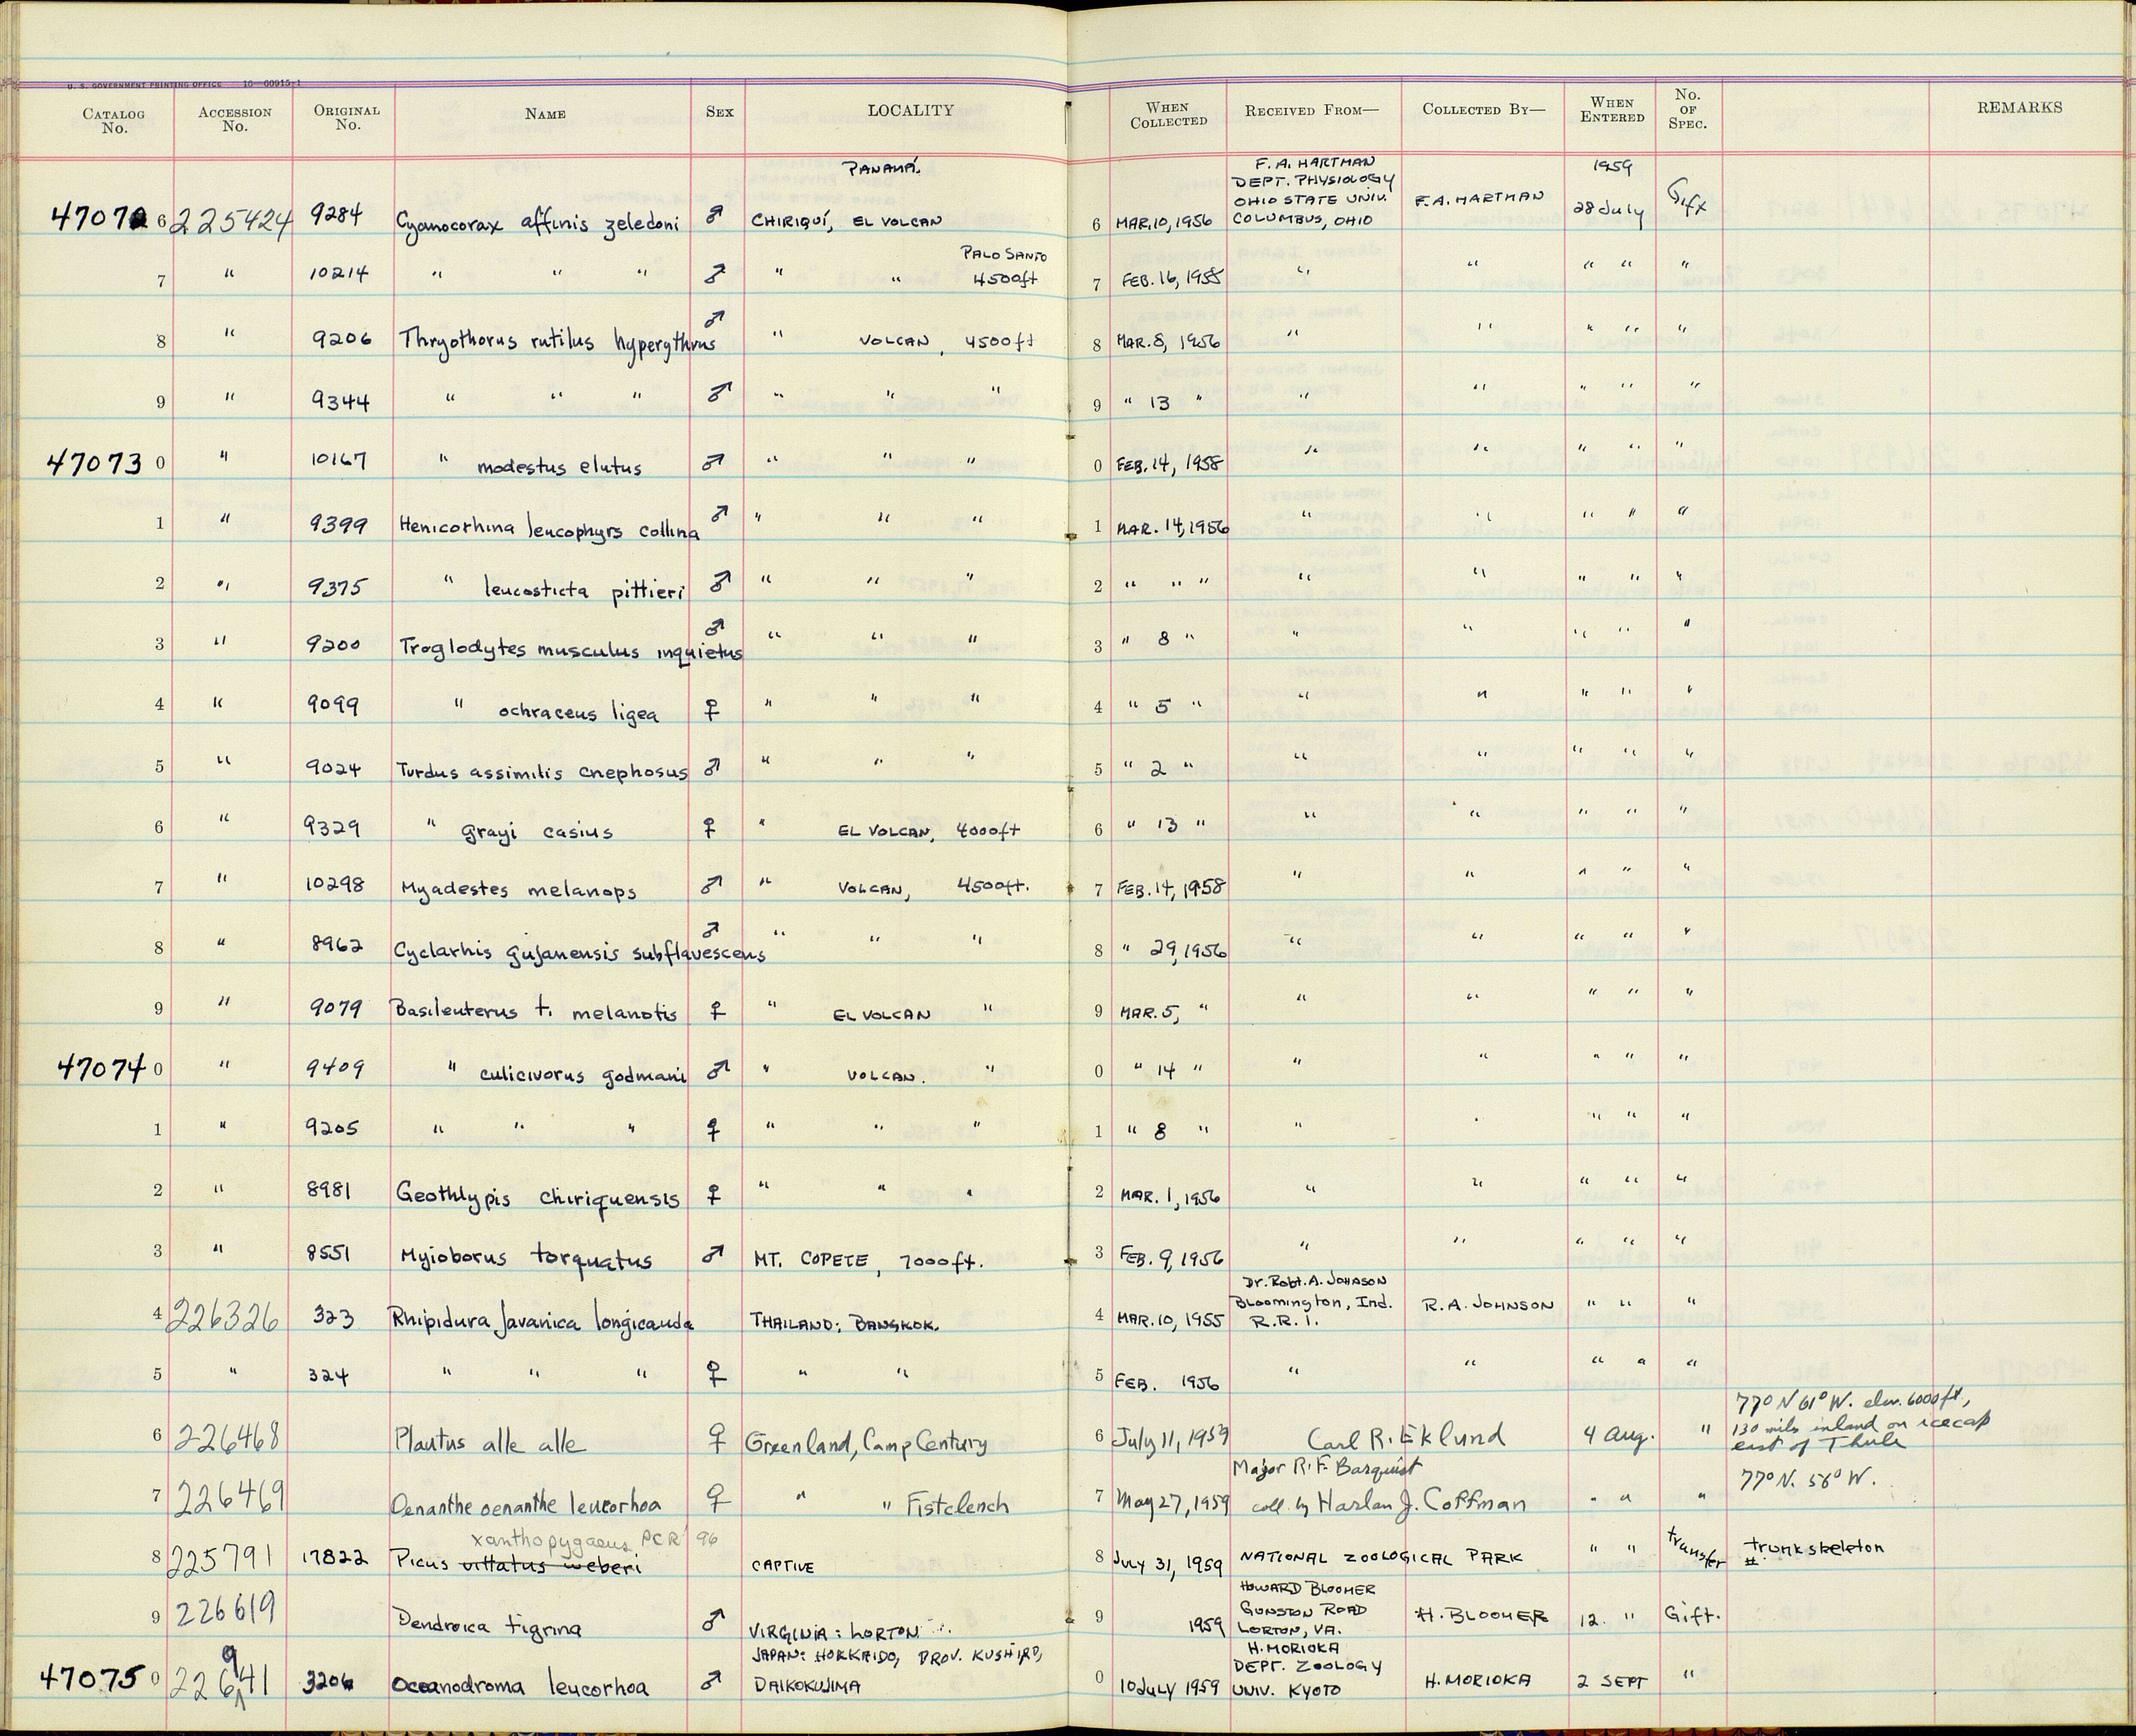 U. S. GOVERNMENT PRINTING OFFICE 16—60915-1
CATALOG No. ACCESSION No. ORIGINAL No. NAME SEX LOCALITY WHEN COLLECTED RECEIVED FROM— COLLECTED BY— WHEN ENTERED No. OF SPEC. REMARKS
PANAMÁ. F. A. HARTMAN 1959
DEPT. PHYSIOLOGY
OHIO STATE UNIV.
47072 6 225424 9284 Cyanocorax affinis zeledoni ♂ CHIRIQUÍ, EL VOLCAN 6 MAR.10,1956 COLUMBUS, OHIO F.A. HARTMAN 28 July Gift
PALO SANTO
7 " 10214 " " " ♂ " " 4500ft 7 FEB.16,1958 " " " " "
8 " 9206 Thryothorus rutilus hyperythrus ♂ " VOLCAN, 4500ft 8 MAR.8, 1956 " " " " "
9 " 9344 " " " ♂ " " " 9 " 13 " " " " " "
47073 0 " 10167 " modestus elutus ♂ " " " 0 FEB.14, 1958 " " " " "
1 " 9399 Henicorhina leucophyrs collina ♂ " " " 1 MAR. 14,1956 " " " " "
2 " 9375 " leucosticta pittieri ♂ " " " 2 " " " " " " " "
3 " 9200 Troglodytes musculus inquietus ♂ " " " 3 " 8 " " " " " "
4 " 9099 " ochraceus ligea ♀ " " " 4 " 5 " " " " " "
5 " 9024 Turdus assimilis cnephosus ♂ " " " 5 " 2 " " " " " "
6 " 9329 " grayi casius ♀ " EL VOLCAN, 4000ft 6 " 13 " " " " " "
7 " 10298 Myadestes melanops ♂ " VOLCAN, 4500ft. 7 FEB.14,1958 " " " " "
8 " 8962 Cyclarhis gujanensis subflavescens ♂ " " " 8 " 29,1956 " " " " "
9 " 9079 Basileuterus t. melanotis ♀ " EL VOLCAN " 9 MAR.5, " " " " " "
47074 0 " 9409 " culicivorus godmani ♂ " VOLCAN. " 0 " 14 " " " " " "
1 " 9205 " " " ♀ " " " 1 " 8 " " " " " "
2 " 8981 Geothlypis chiriquensis ♀ " " " 2 MAR. 1,1956 " " " " "
3 " 8551 Myioborus torquatus ♂ MT. COPETE, 7000ft. 3 FEB. 9,1956 " " " " "
Dr. Robt. A. JOHNSON
Bloomington, Ind.
4 226326 323 Rhipidura Javanica longicauda THAILAND: BANGKOK. 4 MAR.10, 1955 R.R. 1. R.A. JOHNSON " " "
5 " 324 " " " ♀ " " 5 FEB. 1956 " " " " "
77° N 61° W. elev. 6000ft,
130 miles inland on icecap
6 226468 Plautus alle alle ♀ Greenland, Camp Century 6 July 11, 1959 Carl R. Eklund 4 Aug. " east of Thule
Major R. F. Barquist
7 226469 Oenanthe oenanthe leucorhoa ♀ " " Fistclench 7 May 27, 1959 coll. by Harlan J. Coffman " " " 77° N. 56° W.
xanthopygaeus PCR '96
8 225791 17822 Picus vittatus weberi CAPTIVE 8 July 31, 1959 NATIONAL ZOOLOGICAL PARK " " transfer trunk skeleton #
HOWARD BLOOMER
GUNSTON ROAD
9 226619 Dendroica tigrina ♂ VIRGINIA: LORTON 9 1959 LORTON, VA. H. BLOOMER 12. " Gift.
JAPAN: HOKKAIDO, PROV. KUSHIRO, H. MORIOKA
DEPT. ZOOLOGY
47075 0 226941 3206 Oceanodroma leucorhoa ♂ DAIKOKUJIMA 0 10 July 1959 UNIV. KYOTO H. MORIOKA 2 SEPT "